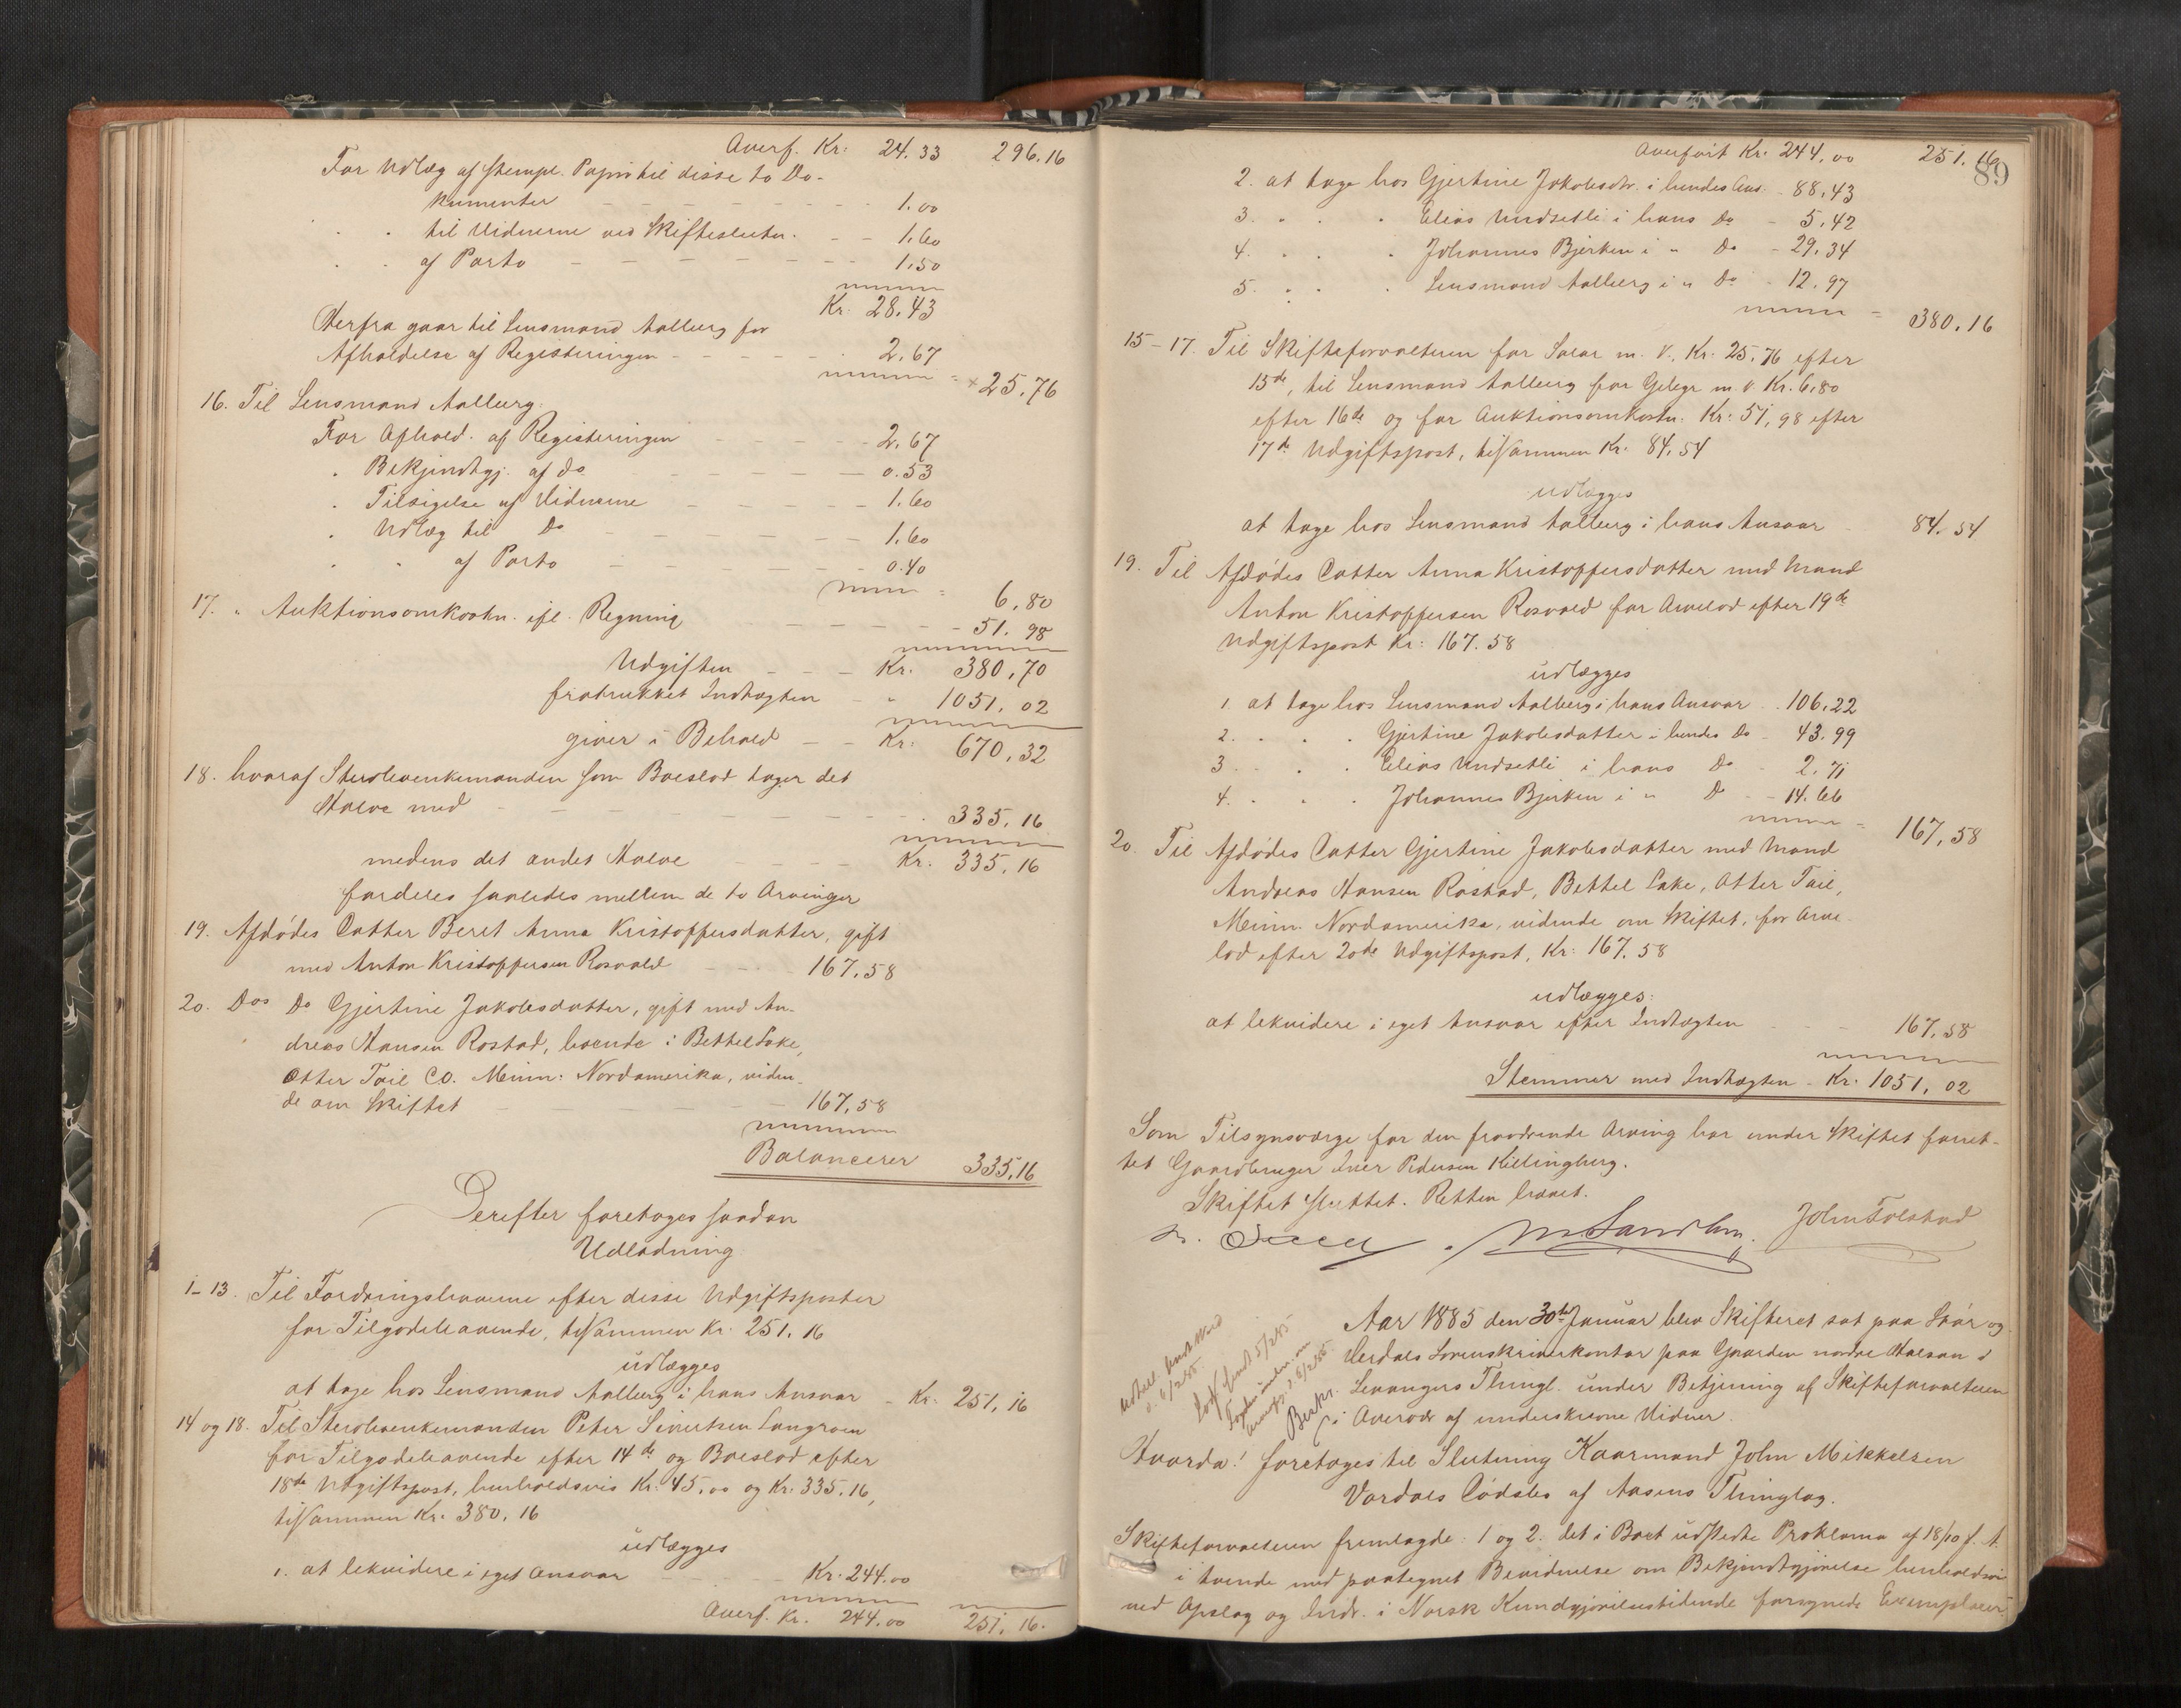 Overf. Kr. 24.33 296.16
For Udlæg af stempl. Papir til disse to Do-
kumenter - - - 1.00
" " til Vidnerne ved Skifteslutn. - - 1.60
" " af Porto - - - 1.50
Kr. 28.43
Herfra gaar til Lensmand Aalberg for
Afholdelse af Registeringen - - - 2.67
= 25.76
16. Til Lensmand Aalberg:
For Afhold. af Registeringen - - - 2.67
" Bekjendtgj. af Do - - - 0.53
" Tilsigelse af Vidnerne - - - 1.60
" Udlæg til Do - - - 1.60
" " af Porto - - - 0.40
= 6.80
17. " Auktionsomkostn. ifl. Regning - - - 51.98
Udgiften - - - Kr. 380.70
fratrukket Indtægten - " 1051.02
giver i Behold - - Kr. 670.32
18. hvoraf Sterbeenkemanden som Boeslod tager det
Halve med - - - 335.16
medens det andet Halve - - - Kr. 335.16
fordeles saaledes mellem de to Arvinger
19. Afdødes Datter Beret Anna Kristoffersdatter, gift
med Anton Kristoffersen Rosvold - - - 167.58
20. Dos Do Gjertine Jakobsdatter, gift med An-
dreas Hansen Rostad, boende i Bettel Lake,
Otter Tail Co. Minn. Nordamerika, viden-
de om Skiftet - - - 167.58
Balancerer 335.16
Derefter foretages saadan
Udlodning
1-13. Til Fordringshaverne efter disse Udgiftsposter
for Tilgodehavende, tilsammen Kr. 251.16
udlægges
at tage hos Lensmand Aalberg i hans Ansvar - Kr. 251.16
14 og 18. Til Sterbeenkemanden Peter Sivertsen Langroen
for Tilgodehavende efter 14de og Boeslod efter
18de Udgiftspost, henholdsvis Kr. 45.00 og Kr. 335.16,
tilsammen Kr. 380.16
udlægges
1. at lekvidere i eget Ansvar - - - Kr. 244.00
Overf. Kr. 244.00 251.16.
Overført Kr. 244.00 251.16
89
2. at tage hos Gjertine Jakobsdtr. i hendes Ans. - 88.43
3. " " " Elias Undsetli i hans Do - 5.42
4. " " " Johannes Bjerken i " Do - 29.34
5. " " " Lensmand Aalberg i " Do - 12.97
= 380.16
15-17. Til Skifteforvalteren for Salær m. V., Kr. 25.76 efter
15de, til Lensmand Aalberg for Gebyr m. V. Kr. 6.80
efter 16de og for Auktionsomkostn. Kr. 51,98 efter
17de Udgiftspost, tilsammen Kr. 84.54
udlægges
at tage hos Lensmand Aalberg i hans Ansvar - 84.54
19. Til Afdødes Datter Anna Kristoffersdatter med Mand
Anton Kristoffersen Rosvold for Arvelod efter 19de
Udgiftspost Kr. 167.58
udlægges
1. at tage hos Lensmand Aalberg i hans Ansvar - 106.22
2. " " " Gjertine Jakobsdatter i hendes Do - 43.99
3. " " " Elias Undsetli i hans Do - 2.71
4. " " " Johannes Bjerken i " Do - 14.66
= 167.58
20. Til Afdødes Datter Gjertine Jakobsdatter med Mand
Andreas Hansen Rostad, Bettel Lake, Otter Tail,
Minn. Nordamerika, vidende om Skiftet, for Arve-
lod efter 20de Udgiftspost, Kr. 167.58
udlægges:
at lekvidere i eget Ansvar efter Indtægten - - 167.58
Stemmer med Indtægten - Kr. 1051.02
Som Tilsynsværge for den fraværende Arving har under Skiftet forret-
tet Gaardbruger Iver Pedersen Killingberg.
Skiftet sluttet. Retten hævet.
M. Sandberg. John Tolstad
Aar 1885 den 30te Januar blev Skifteret sat paa Stør og
Verdals Sorenskriverkontor paa Gaarden nordre Halsan i
Levangers Thingl. under Betjening af Skifteforvalteren
i Overvær af underskrevne Vidner.
Beskr.
Hvorda: foretoges til Slutning Kaarmand John Mikkelsen
Vordals Dødsbo af Aasens Thinglag.
Skifteforvalteren fremlagde: 1 og 2. det i Boet udstedte Proklama af 18/10 f. A.
i tvende med paategnet Bevidnelse om Bekjendtgjørelse henholdsvis
ved Opslag og Indr. i Norsk Kundgjørelsestidende forsynede Exemplarer,